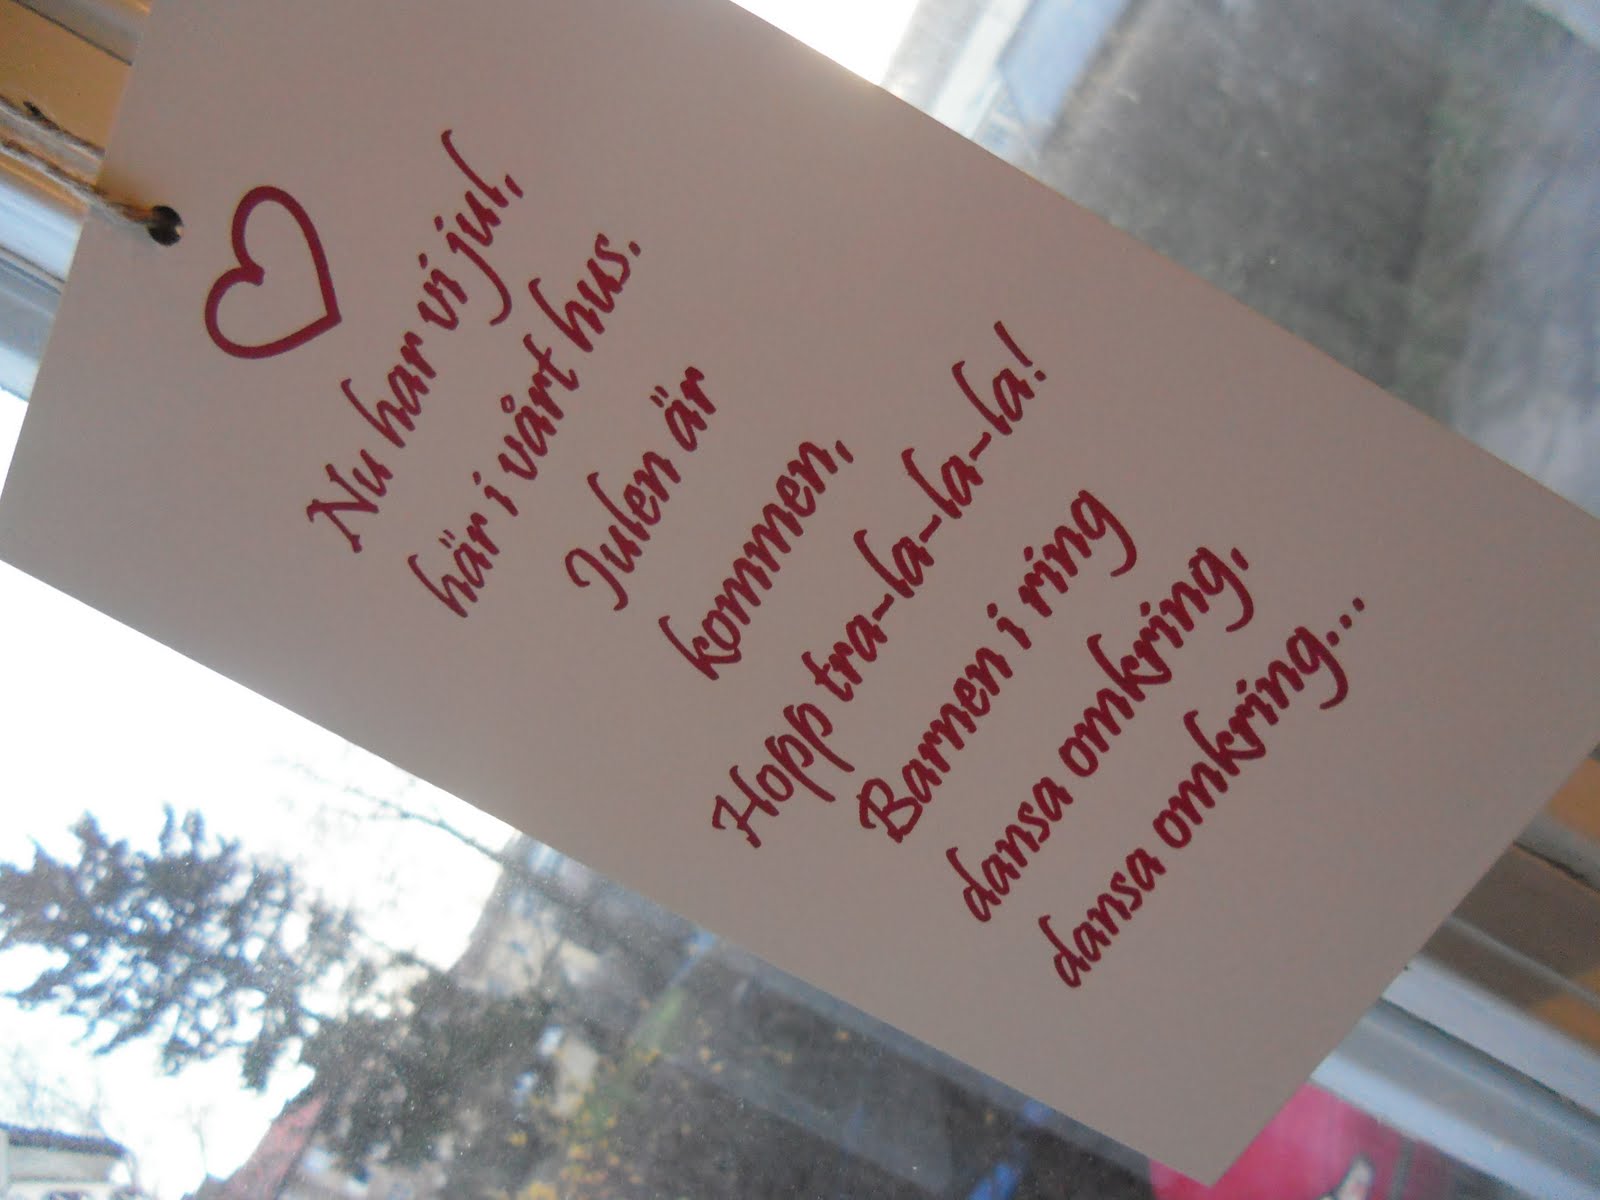 Nu har vi jul,
här i vårt hus.
Julen är
kommen,
Hopp tra-la-la-la!
Barnen i ring
dansa omkring,
dansa omkring...